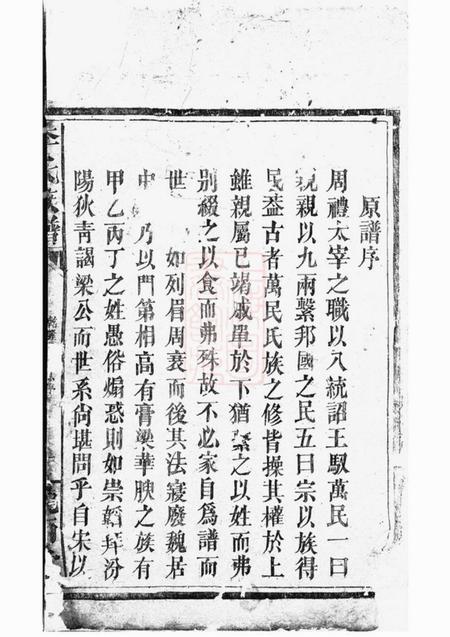 原譜序
周禮太宰之職以八統詔王馭萬民一曰
親親以九兩繫邦國之民五曰宗以族得
民葢古者萬民氏族之修皆操其權於上
雖親屬已竭戚單於下猶繫之以姓而弗
別綴之以食而弗殊故不必家自為譜而
世 如列眉周衰而後其法寖廢魏居
中 乃以門第相高有膏粱華腴之族有
甲乙丙丁之姓愚俗煽惑則如崇韜拜汾
陽狄青謁梁公而世系尚堪問乎自宋以
氏族譜